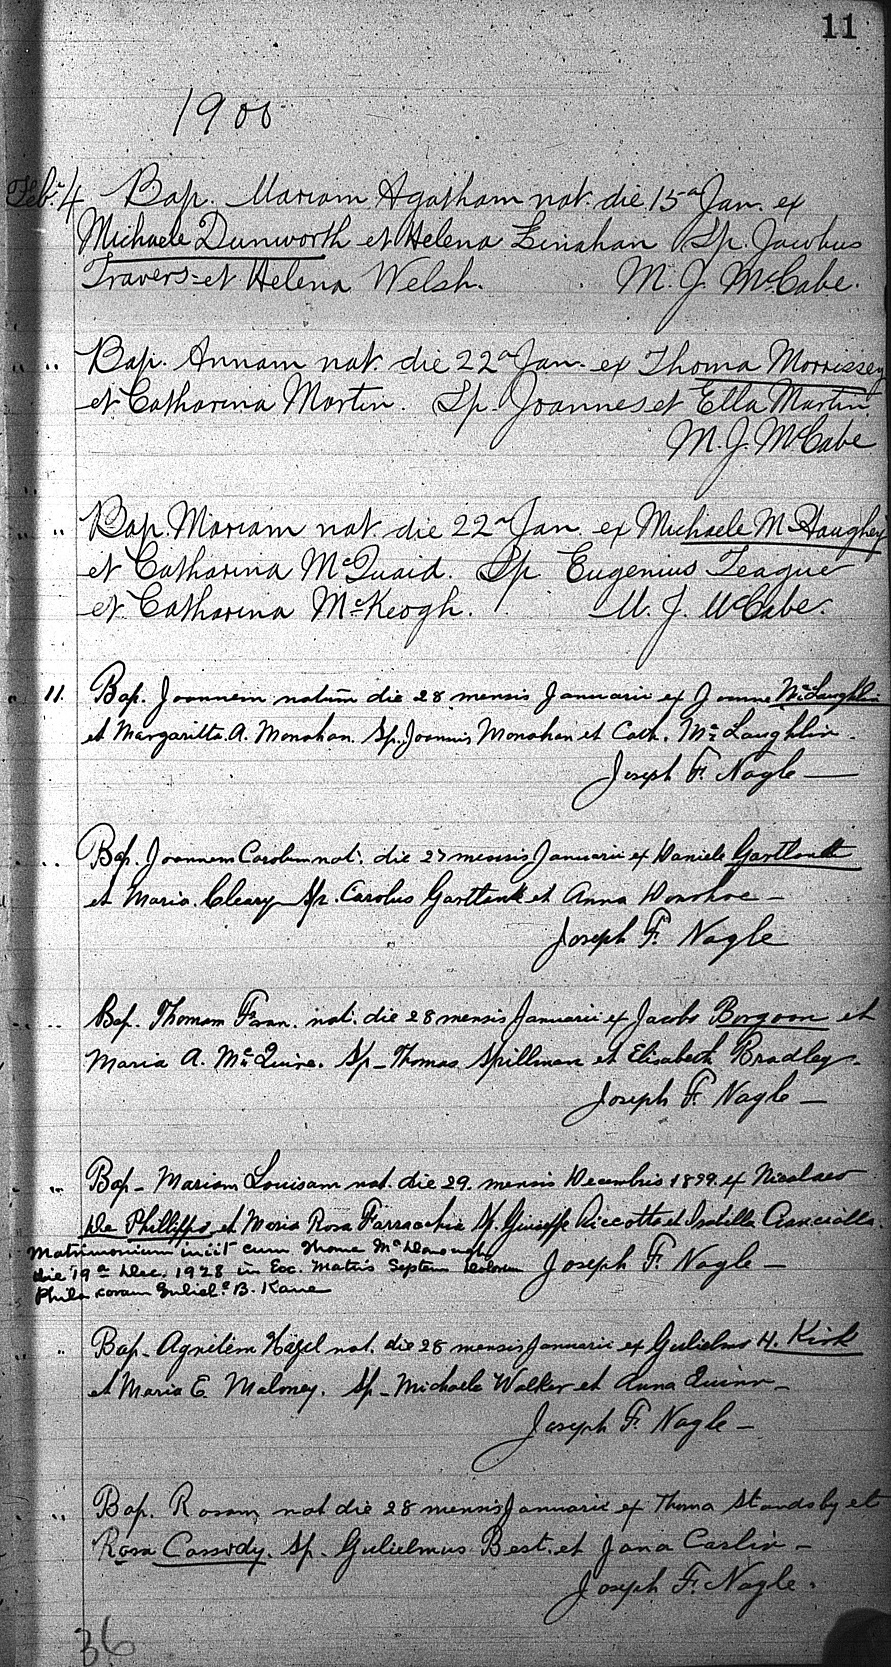 11
1900
Feb. 4 Bap. Mariam Agatham nat. die 15a Jan. ex
Michaele Dunworth et Helena Linahan Sp. Jacobus
Travers et Helena Welsh. M. J. McCabe.
" " Bap. Annam nat. die 22a Jan. ex Thoma Morrissey
et Catharina Martin. Sp. Joannes et Ella Martin.
M. J. McCabe
" " Bap. Mariam nat. die 22a Jan. ex Michaele McHaughey
et Catharina McQuaid. Sp. Eugenius Teague
et Catharina McKeogh. M. J. McCabe.
" 11. Bap. Joannem natum die 28 mensis Januarii ex Joanne McLaughlin
et Margaritta A. Monahan. Sp. Joannis Monahan et Cath. McLaughlin.
Joseph F. Nagle —
" " Bap. Joannem Carolum nat. die 27 mensis Januarii ex Daniele
et Maria Cleary Sp. Carolus et Anna Donohoe —
Joseph F. Nagle
" " Bap. Thomam Fran. nat. die 28 mensis Januarii ex Jacobo Borgoon et
Maria A. McQuire. Sp — Thomas Spillman et Elisabeth Bradley.
Joseph F. Nagle —
" " Bap — Mariam Louisam nat. die 29. mensis Decembris 1899. ex Nicolaeo
De Phillipps et Maria Rosa Giuseppe Riccotta et
Matrimonium iniit cum Thoma McDonough
die 19a Dec. 1928 in Ecc. Matris Septem Dolorum Joseph F. Nagle —
Phila coram Guliel. B. Kane
" " Bap — Agnetem Hazel nat. die 28 mensis Januarii ex Gulielmo H. Kirk
et Maria E. Maloney. Sp — Michaele Walker et Anna Quinn —
Joseph F. Nagle —
" " Bap. Rosam nat die 28 mensis Januarii ex Thoma Standsby et
Rosa Cassody. Sp. Gulielmus Best. et Jana Carlin —
Joseph F. Nagle.
36